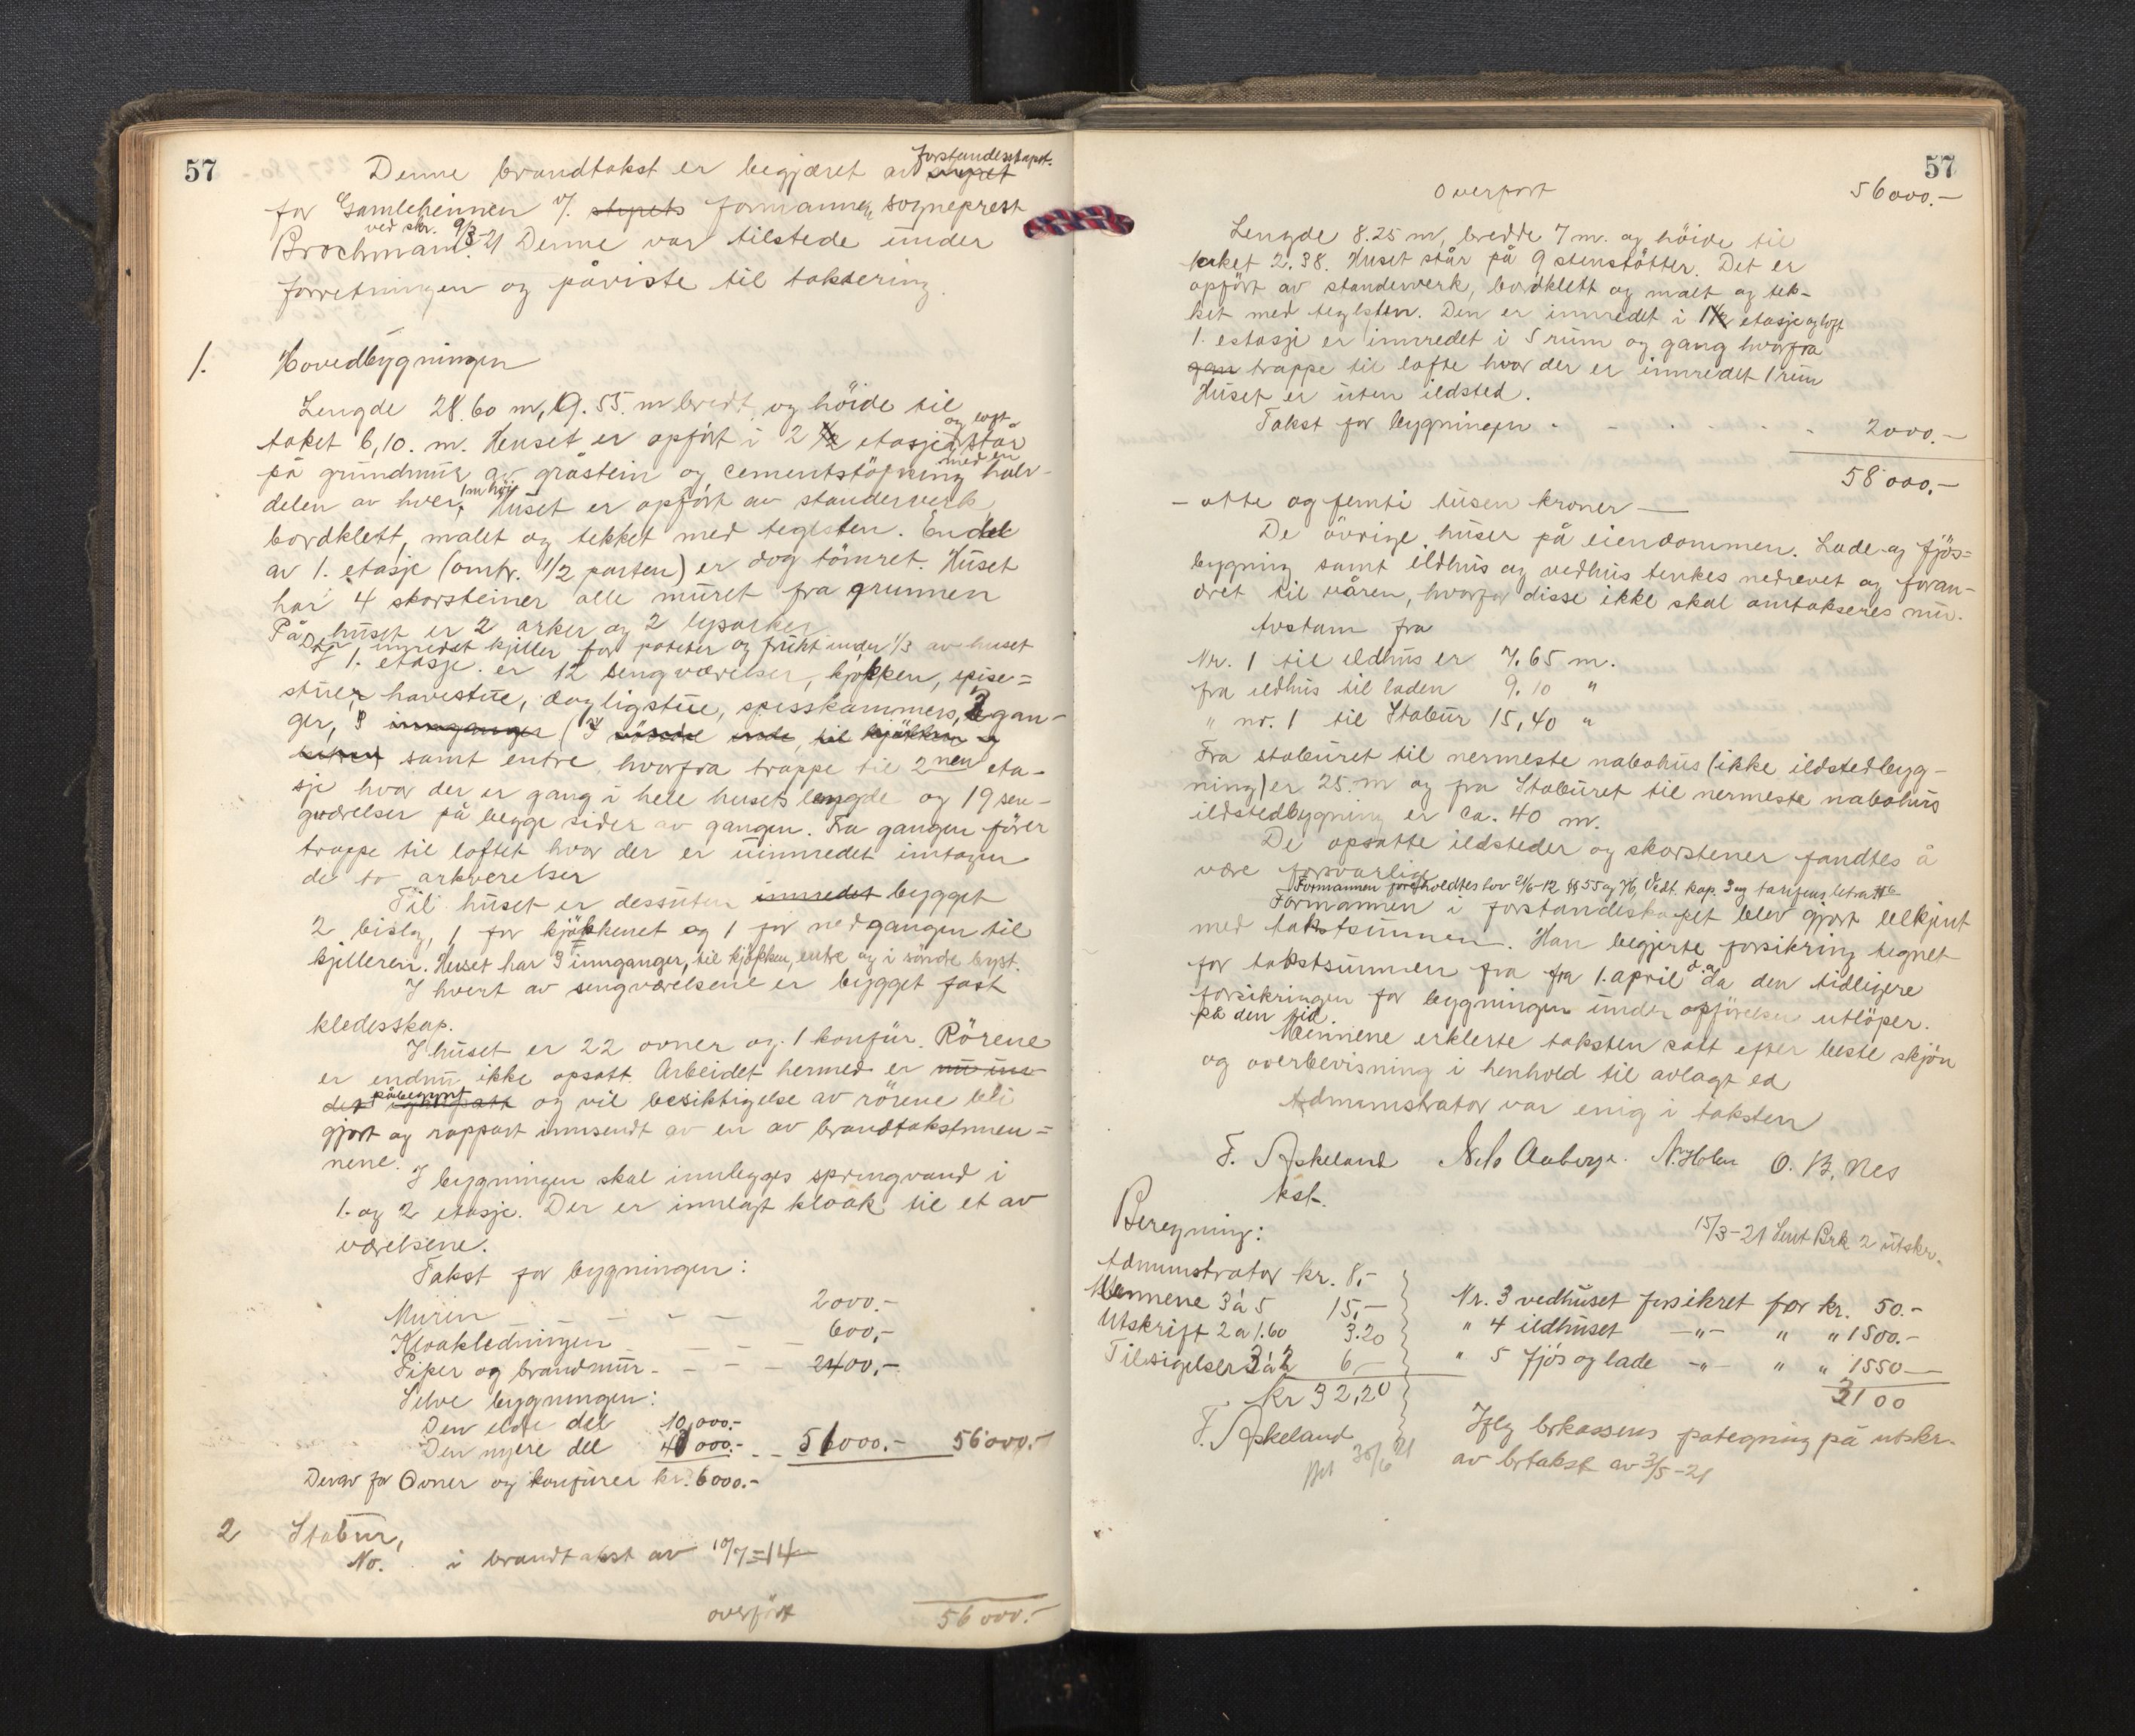 57
Denne brandtakst er begjæret av styret forstandersskapet.
for Gamleheimen v. styrets formannen, sogneprest
Brochmann. ved skr. 9/3-21 Denne var tilstede under
forretningen og påviste til taksering.
1. Hovedbygningen
Lengde 28.60 m, 9.55. m bredt og höide til
taket 6,10. m. Huset er opfört i 2 1/2 etasjer og loft står
på grundmur av gråstein og cementstöpning med en halv-
delen av hver, 1 m höi. Huset er opfört av standerverk
bordklett, malet og tekket med teglsten. En del
av 1. etasje (omtr. 1/2 parten) er dog tömret. Huset
har 4 skorsteiner alle muret fra grunnen
På huset er 2 arker og 2 lysarker
Der innredet kjeller for poteter og frukt under 1/3 av huset
I 1. etasje er 12 sengværelser, kjøkken, spise=
stuer, havestue, dagligstue, spisskammers, 2 gan-
ger, 3 innganger (I söndre ende, til kjökken og
samt entre, hvorfra trappe til 2nen eta-
sje hvor der er gang i hele husets lengde og 19 sen-
gværelser på begge sider av gangen. Fra gangen förer
trappe til loftet hvor der er uinnredet inntagen
de to arkverelser
Til huset er dessuten innredet bygget
2 bislag, 1 for kjökkenet og 1 for nedgangen til
kjelleren. Huset har 3 innganger, til kjökken, entre og i söndre byst.
I hvert av sengværelsene er bygget fast
kledesskap.
I huset er 22 ovner og 1 komfur. Rörene
er endnu ikke opsatt. Arbeidet hermed er nu un-
der påbegynt og vil besiktigelse av rörene bli
gjort og rapport innsendt av en av brandtakstmen=
nene.
I bygningen skal innlegges springvand i
1. og 2 etasje. Der er innlagt kloak til et av
værelsene.
Takst for bygningen:
Muren - - - 2000.-
Kloakledningen - - - 600,-
Piper og brandmur - - - - 2400,-
Selve bygningen:
Den eldre del 10,000.-
Den nyere del 41 000.- - - 51000.- 56000.-
Derav for Ovner og komfurer kr. 6000.-
2 Stabur,
No. i brandtakst av 10/7-14
overfört 56000.-
57
Overfört 56000.-
Lengde 8.25 m, bredde 7 m. og höide til
taket 2.38. Huset står på 9 stenstötter. Det er
opfört av standerverk, bordklett og malt og tek-
ket med teglsten. Den er innredet i 1 1/2 etasje og loft
1. etasje er innredet i 5 rum og gang hvorfra
gan trappe til lofte hvor der er innredet 1 rum
Huset er uten ildsted.
Takst for bygningen - - - - 2000.-
58 000.-
- otte og femti tusen kroner -
De övrige huser på eiendommen. Lade og fjös=
bygning samt ildhus og vedhus tenkes nedrevet og foran-
dret til våren, hvorfor disse ikke skal omtakseres nu.
Avstann fra
Nr. 1 til ildhus er 7.65 m.
fra ildhus til laden 9.10 "
" nr. 1 til Stabur 15,40 "
Fra staburet til nermeste nabohus (ikke ildstedbyg-
ning) er 25 m og fra Staburet til nermeste nabohus
ildstedbygning er ca. 40 m.
De opsatte ildsteder og skorstener fandtes å
være forsvarlige
Formannen foreholdtes lov 21/6-12 §§ 55 og 76, Vedt. kap. 3 og tarifens letra
Formannen i forstanderskapet blev gjort bekjent
med takstsummen. Han begjerte forsikring tegnet
for takstsummen fra fra 1. april d.a. da den tidligere
forsikringen for bygningen under opförelse utlöper.
på den tid.
Mennene erklerte taksten satt efter beste skjön
og overbevisning i henhold til avlagt ed
Administrator var enig i taksten
F. Askeland Nels Aaberge. N. Holen O. B. Nes
kst.
15/3-21 Sent Brk 2 utskr.
Beregning:
Administrator kr. 8,-
Mennene 3 à 5 15,-
Utskrift 2 a 1.60 3.20
Tilsigelser 3 à 2 6,-
kr 32,20
F. Askeland
Bet 30/6 21
Nr. 3 vedhuset forsikret for kr. 50.-
" 4 ildhuset -"- " " 1500.-
" 5 fjös og lade -"- " " 1550-
3100
Ifølg brkassens påtegning på utskr.
av brtakst av 3/5-21